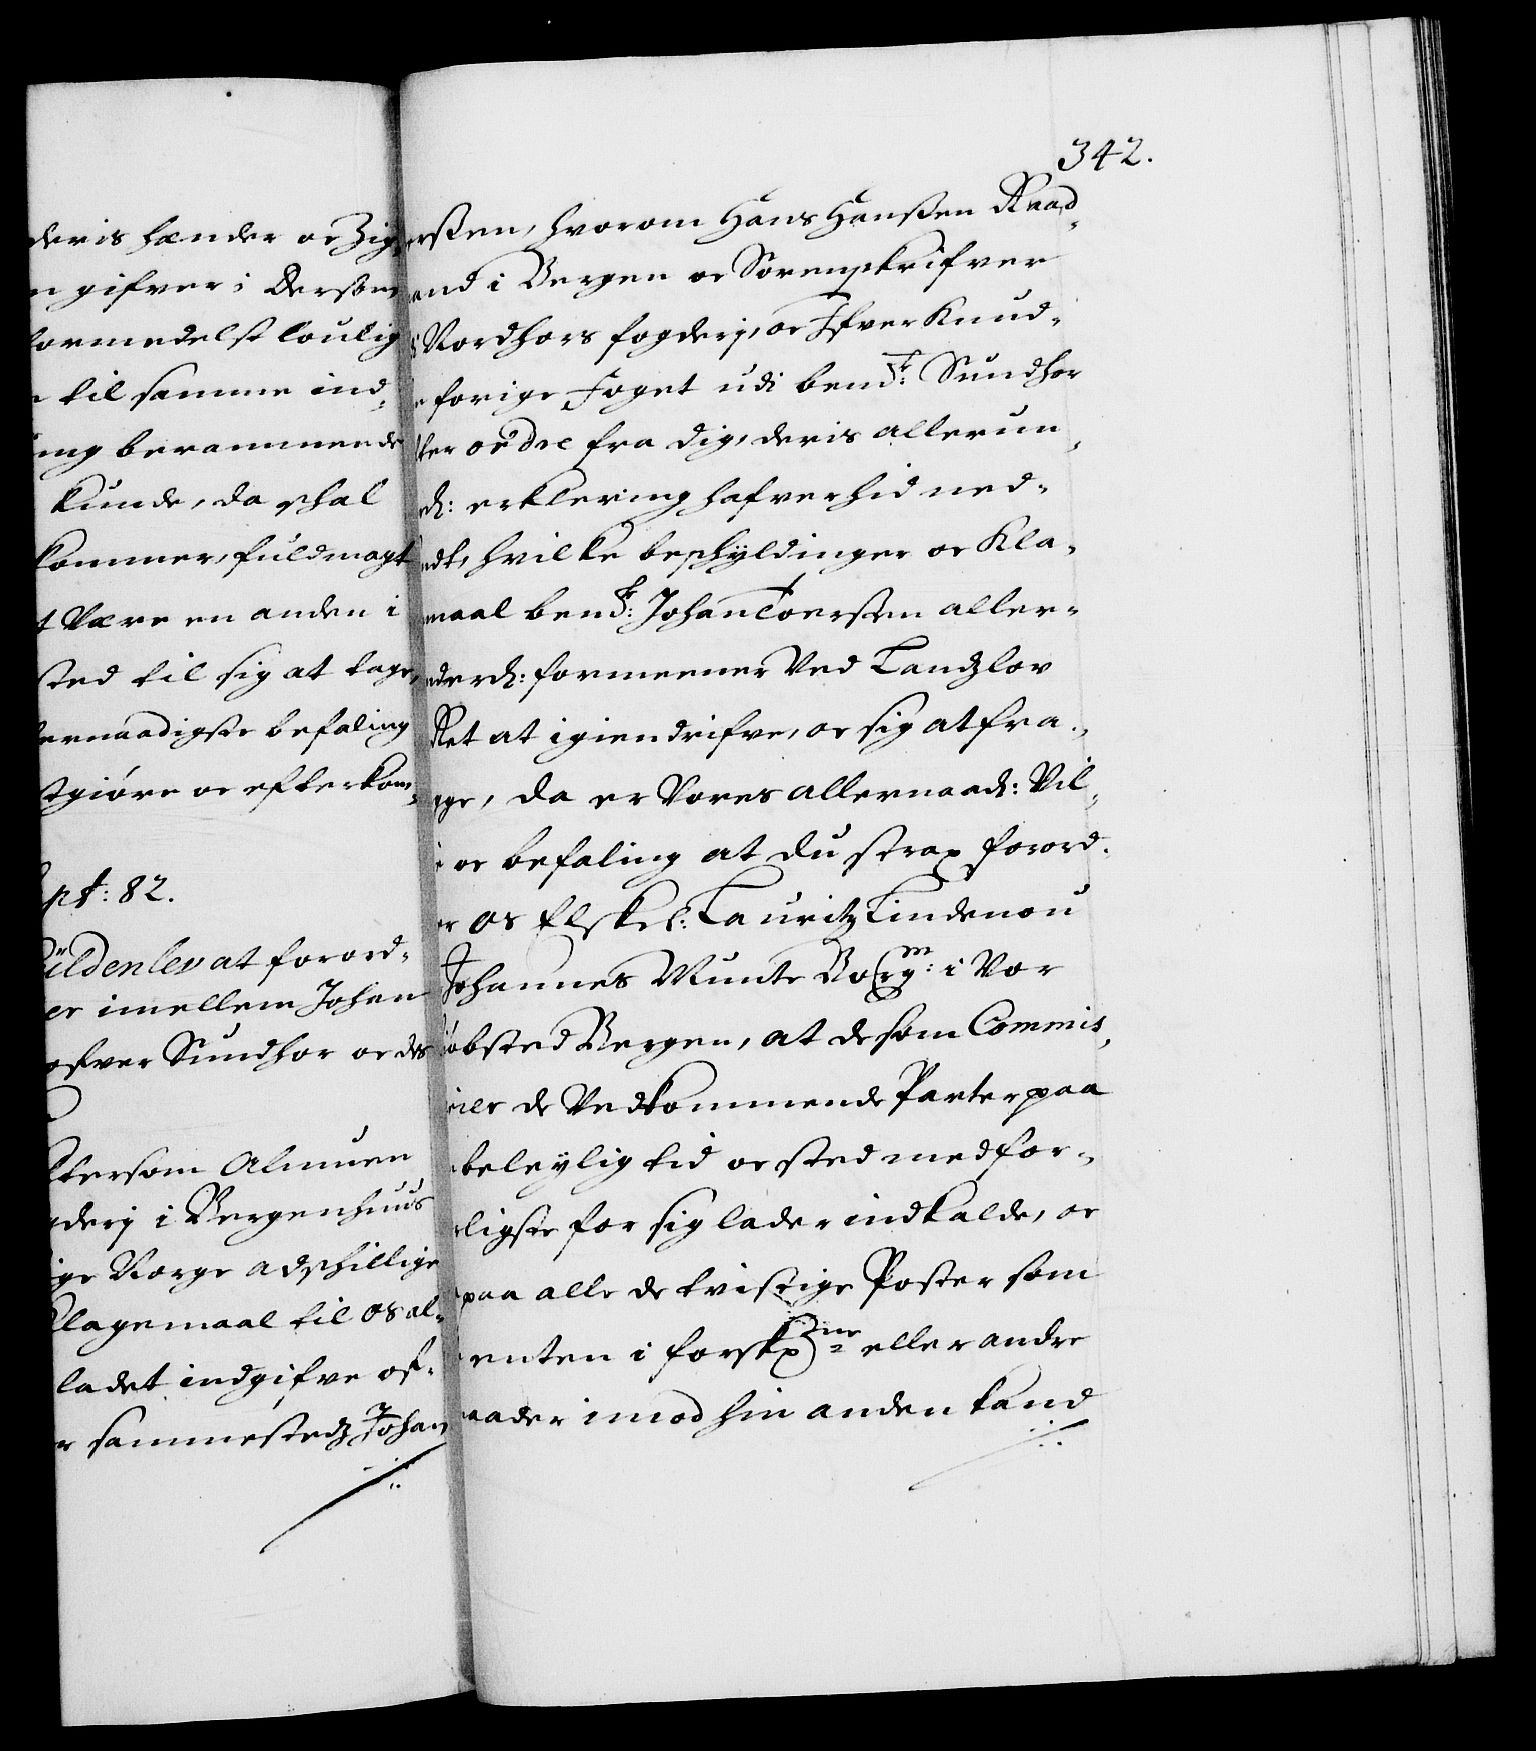 deris hænder oc Zig¬
n gifver i Dersom
formedelst loulig
e til samme ind¬
ing berammende
kunde, da schal
kommer, fuldmagt
t Være en anden i
sted til sig at tage,
ernaadigste befaling
tgiöre oc efterkom¬
pt: 82.
üldenlev at forord¬
er imellem Johan
ofver Sundhor oc des
tersom Almuen
gderj i Bergenhuus
ige Norge adschillige
Klagemaal til os al¬
ladet indgifve of¬
r sammestedz Johan
342.
erssen, hvorom Hans Hanssen Raad¬
and i Bergen oc Sorenschrifver
Nordhors fogderj, oc Ifver Knud¬
forige Foget udi bend:te Sundhor
ter ordre fra dig, deris allerun¬
d: erklering hafver hid ned¬
ndt, hvilke beschyldinger oc Kla¬
maal bend:te Johan Toerssen aller¬
nderd: formeener Ved Landzlov
Ret at igiendrifve, oc sig at fra¬
ge, da er Vores allernaad: Vil¬
oc befaling at du strax forord¬
er os Elskel: Lauritz Lindenou
Johannes Munte Borgm: i Vor
iöbsted Bergen, at de som Commis¬
rier de Vedkommende Parter paa
beleylig tid oc sted med for¬
ligste for sig lader indkalde, oc
paa alle de tvistige Poster som
enten i forskr:ne eller andre
maader imod hin anden kand